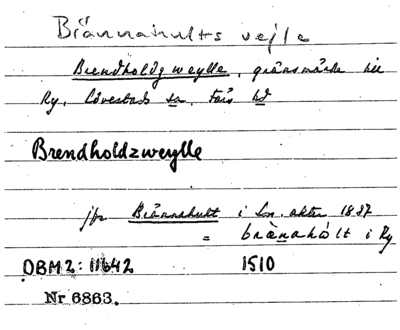 Brännahults vejle
Brendholdzweylle, gränsmärke till
Ry, Lövestads sn, Färs hd
Brendholdzweylle
jfr Brännahult i Lm. akter 1837
= bränahólt i Ry
DBM 2: 11642 1510
Nr 6863.